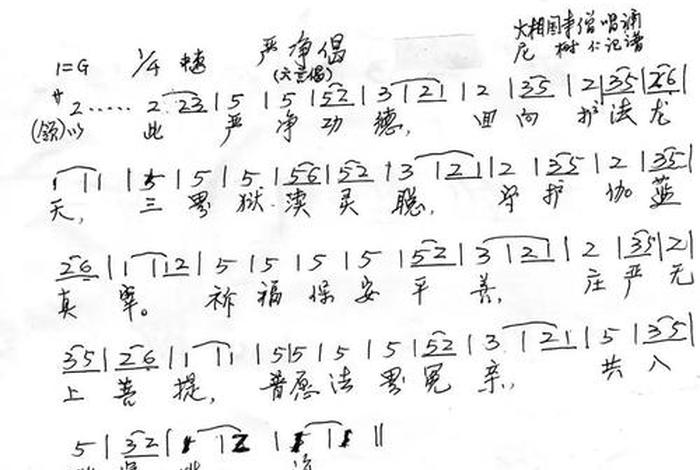 大相国寺僧唱诵
严净偈
1=G 1/4 中速 (六言偈) 尼 树仁记谱
サ 2 …… 2 23 | 5 | 5 | 52 | 3 | 21 | 2 | 35 | 2 | 35 | 26 |
(领)以 此 严 净 功 德, 回 向 护 法 龙
1 | 11 | 5 | 5 | 5 | 56 | 52 | 3 | 21 | 2 | 35 | 2 | 35 |
天, 三 界 狱 渎 灵 聪, 守 护 伽 蓝
26 | 1 | 112 | 5 | 5 | 5 | 5 | 52 | 3 | 21 | 2 | 35 | 2 |
真 宰。 祈 福 保 安 平 善, 庄 严 无
35 | 26 | 1 | 11 | 55 | 5 | 5 | 52 | 3 | 21 | 5 | 35 |
上 菩 提, 普愿 法 界 冤 亲, 共 入
5 | 32 | 1 | 12 | 1 | 1 ||